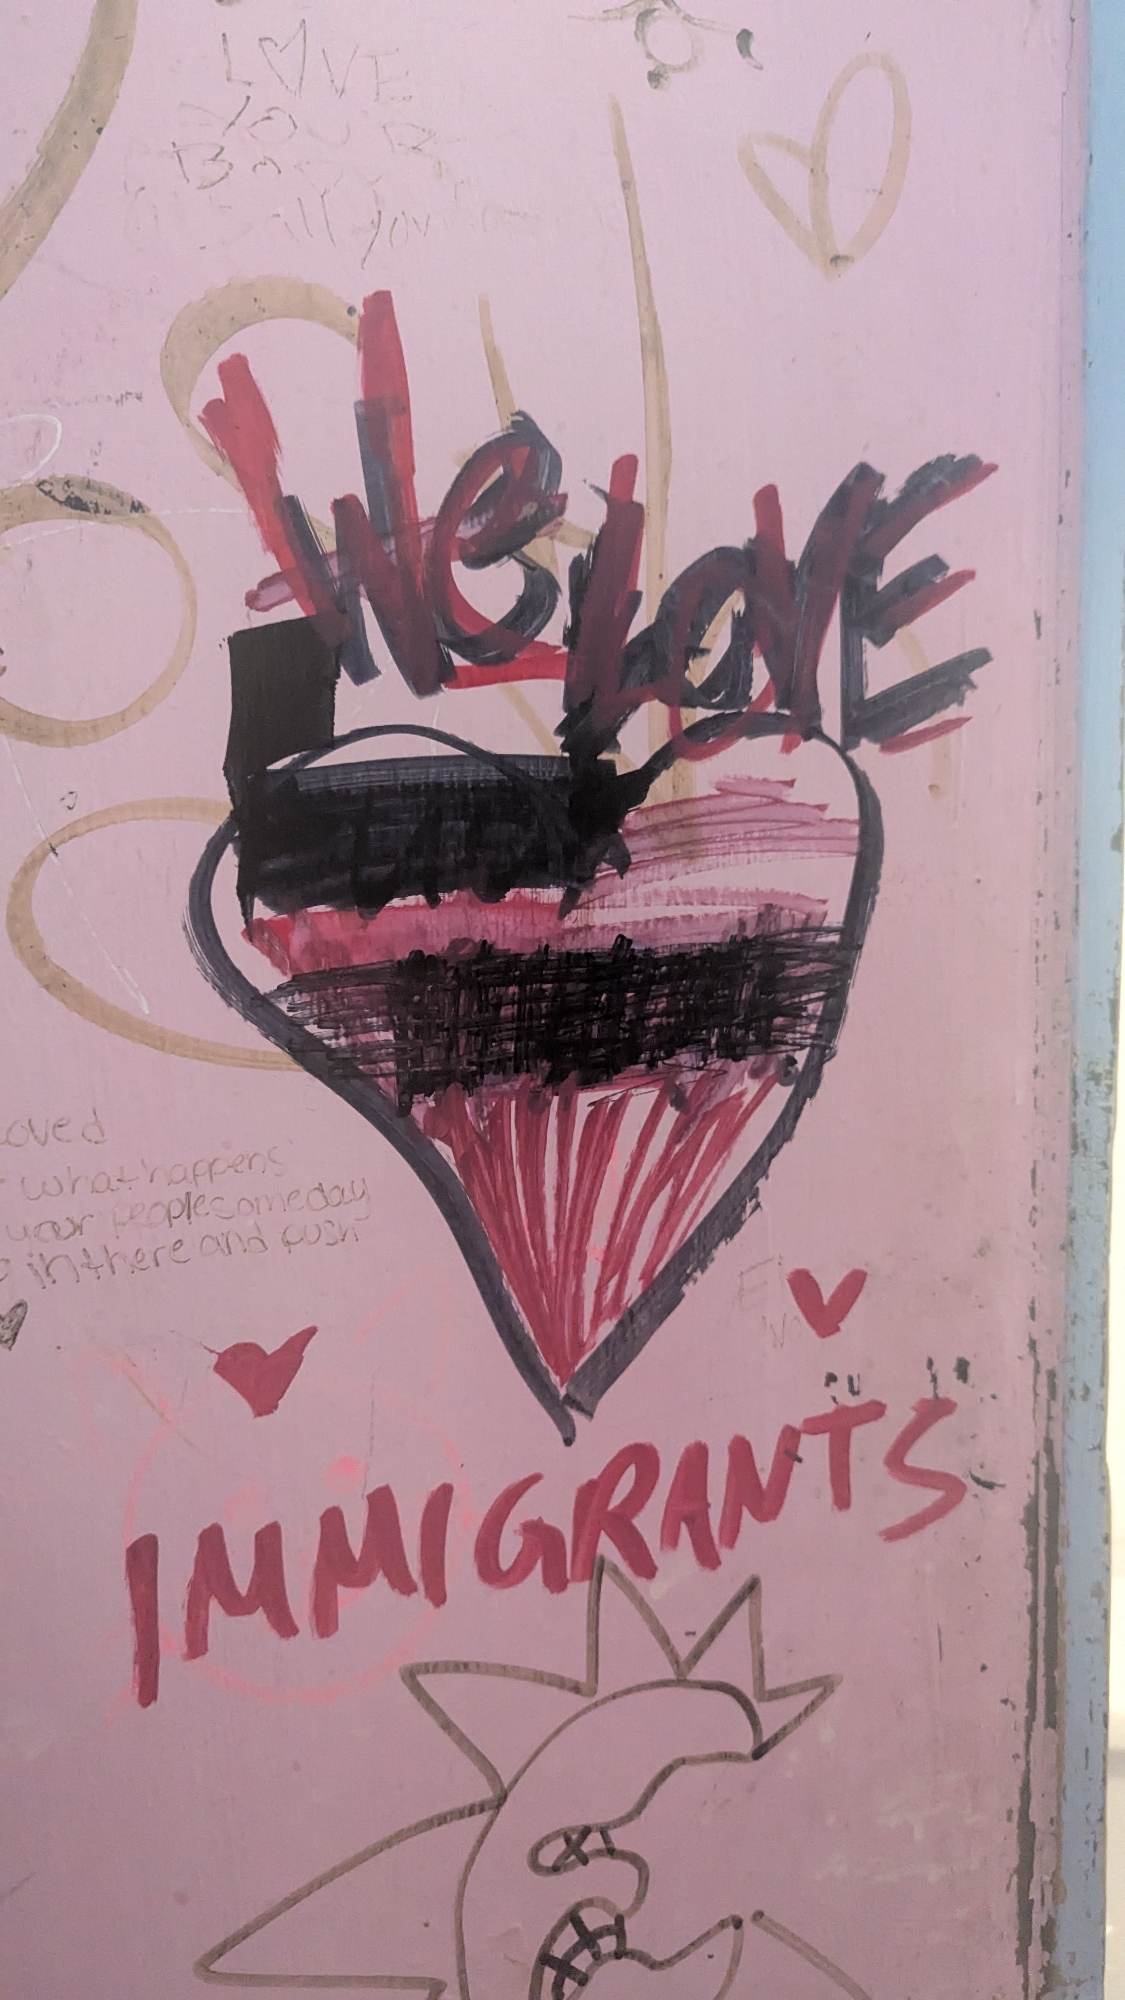 LOVE
YOUR
BODY
all you
We LOVE
oved
what happens
your people someday
in there and push
IMMIGRANTS